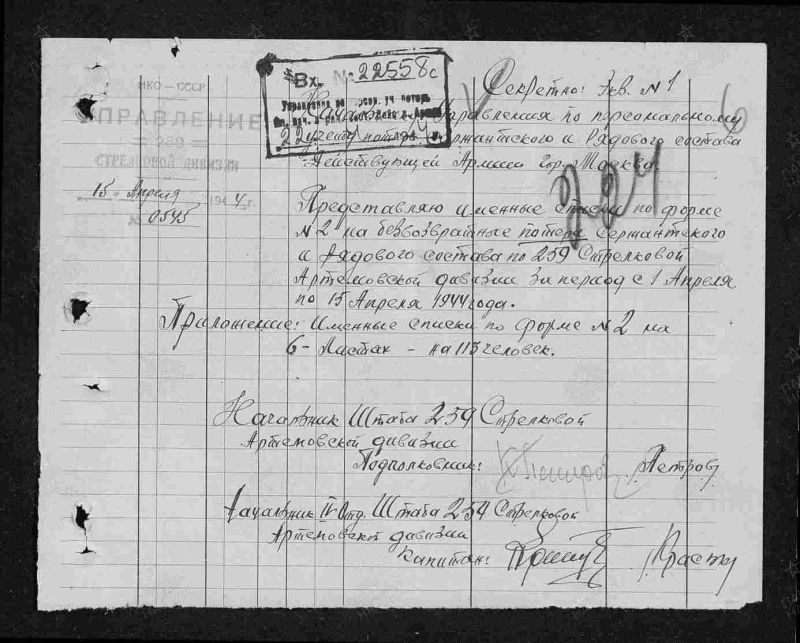 НКО — СССР
УПРАВЛЕНИЕ
259
СТРЕЛКОВОЙ ДИВИЗИИ
15 Апреля 1944 г.
№ 0545
Вх. № 22558с
Секретно: Экз. № 1
Управления по персональному
учету потерь Сержантского и Рядового состава
Действующей Армии Гор. Москва
Представляю именные списки по форме
№ 2 на безвозвратные потери Сержантского
и Рядового состава по 259 Стрелковой
Артемовской дивизии за период с 1 Апреля
по 15 Апреля 1944 года.
Приложение: Именные списки по форме № 2 на
6 - Листах - на 113 человек.
Начальник Штаба 259 Стрелковой
Артемовской дивизии
Подполковник: /Петров/
Начальник IV Отд. Штаба 259 Стрелковой
Артемовской дивизии
Капитан: